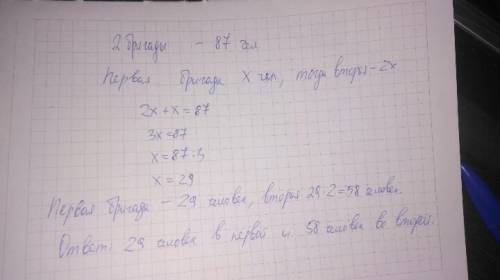 2 бригады - 87 чел
Первая бригада x чел, тогда вторая - 2x
2x + x = 87
3x = 87
x = 87 : 3
x = 29
Первая бригада - 29 человек, вторая 29·2=58 человек.
Ответ: 29 человек в первой и 58 человек во второй.